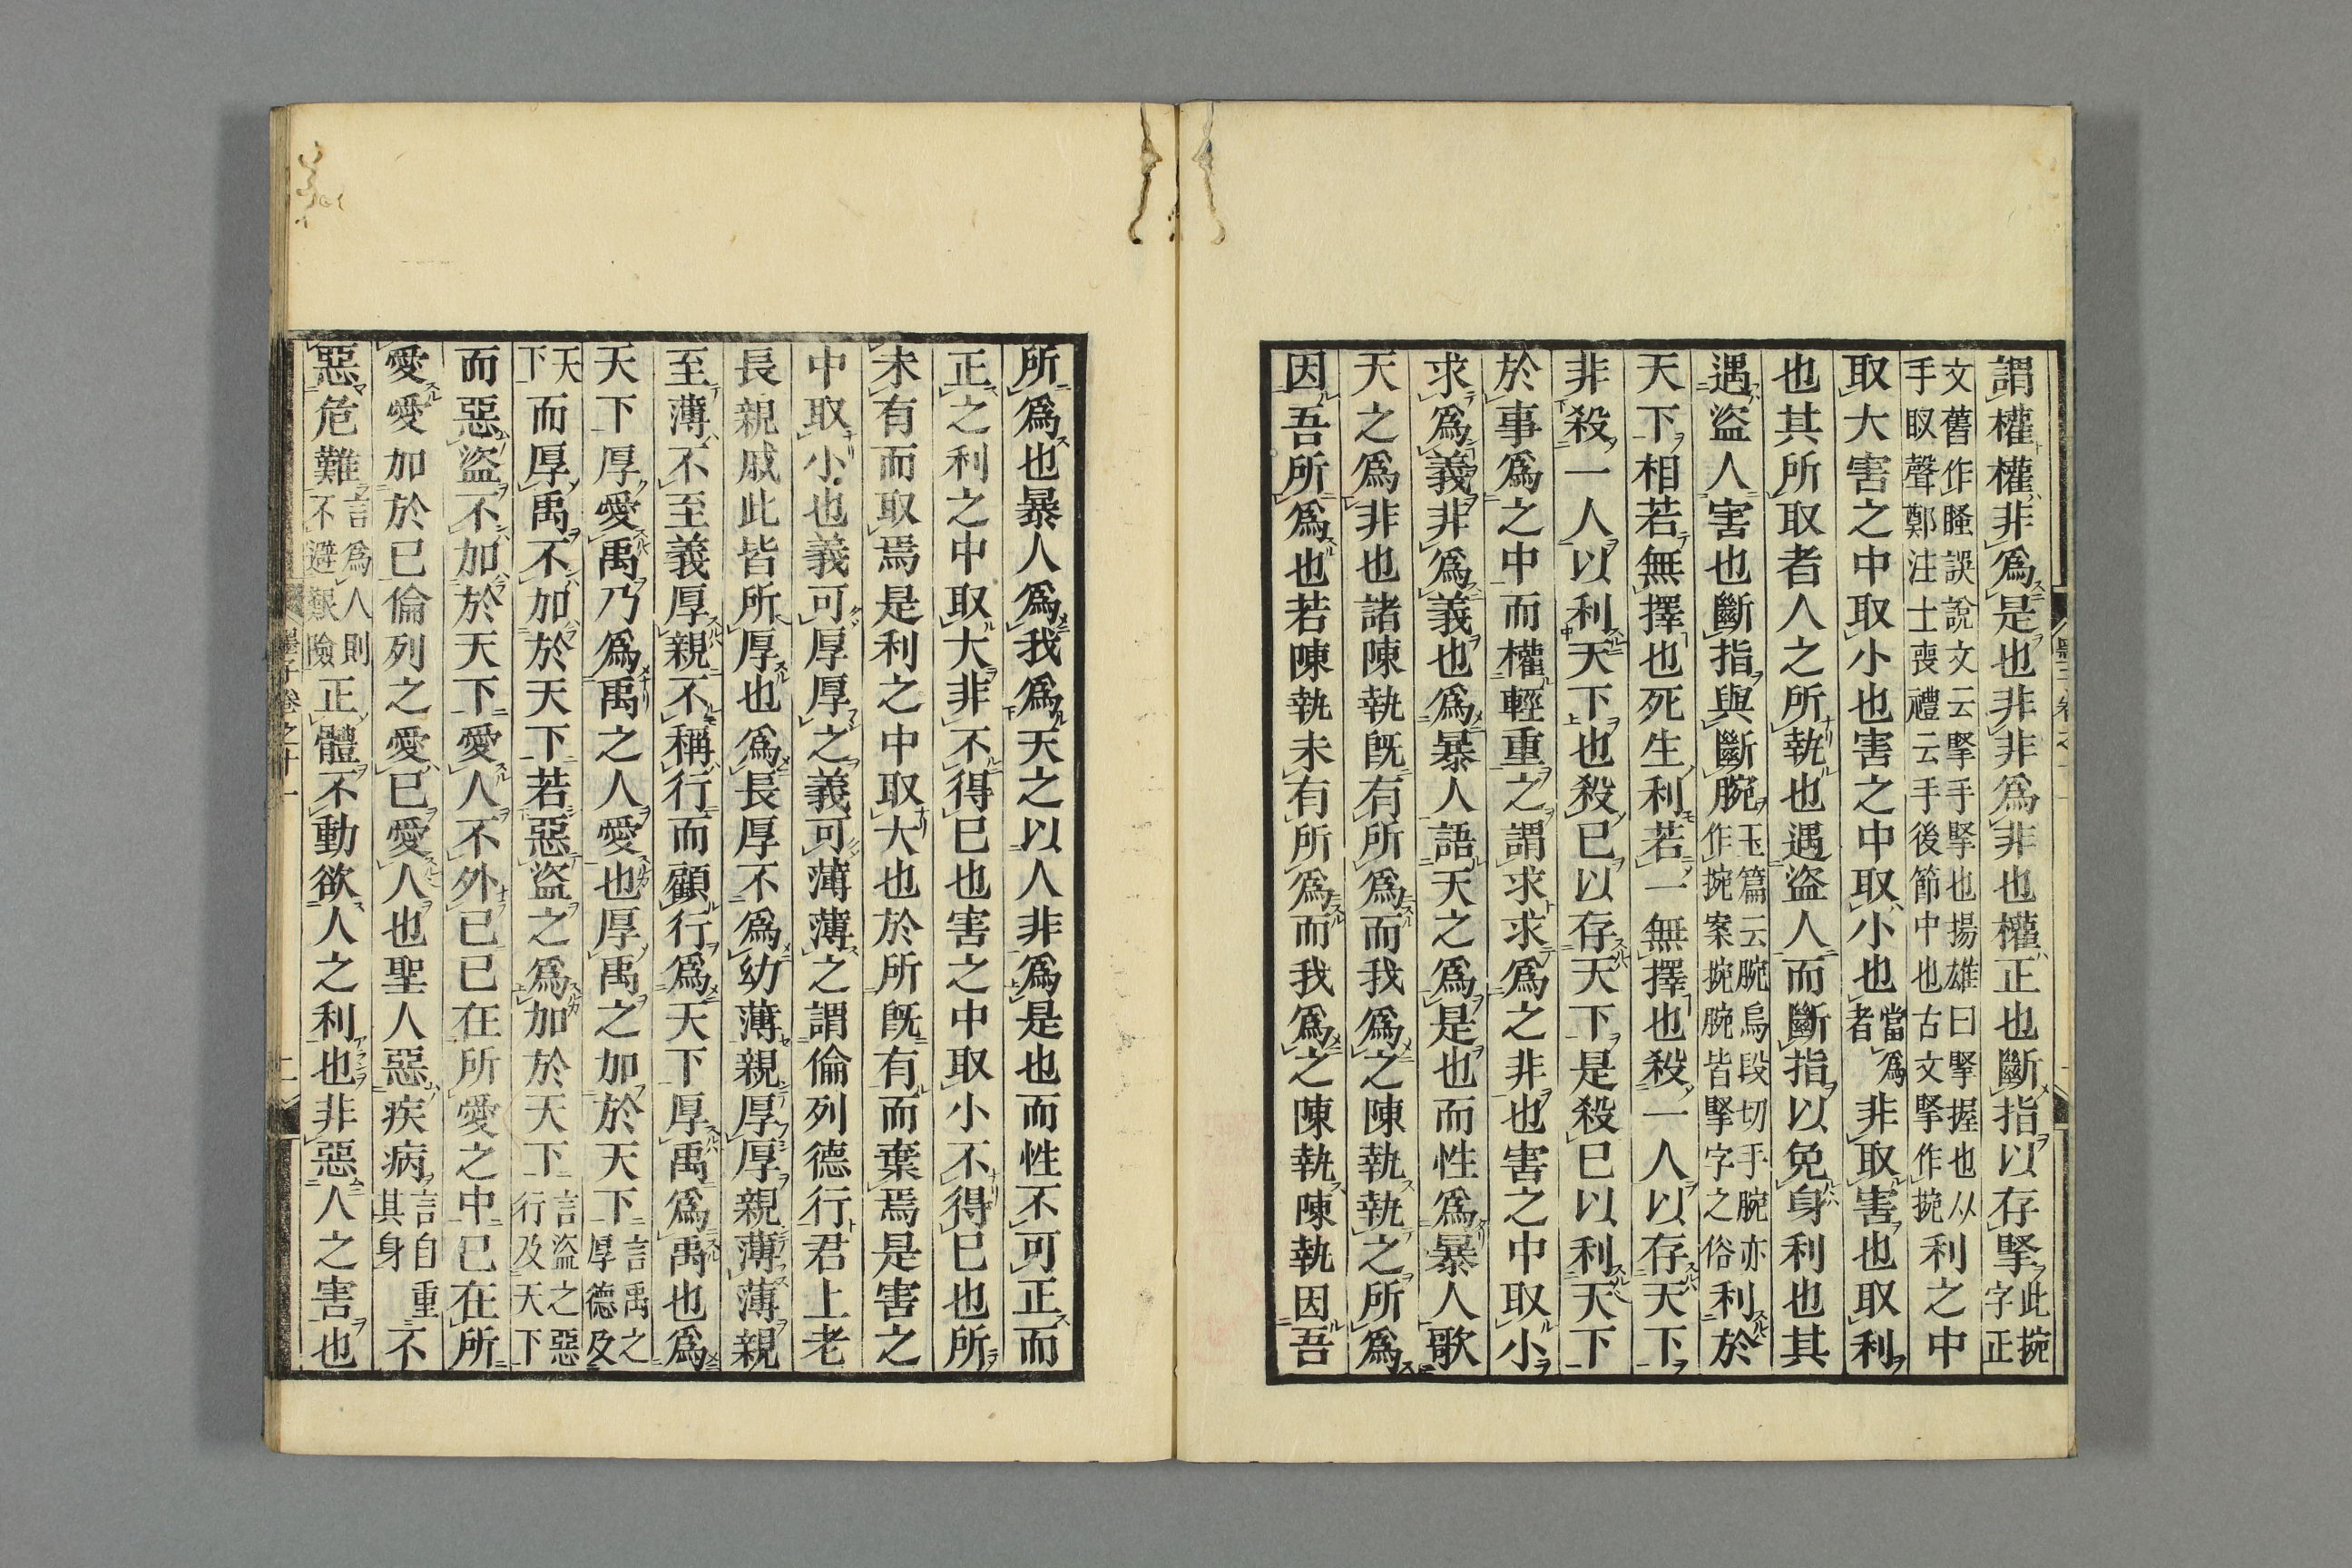 謂權權非爲是也非非爲非也權正也斷指以存掔此捥字正
文舊作誤說文云掔手掔也揚雄曰掔握也从手臤聲鄭注士喪禮云手後節中也古文掔作捥利之中
取大害之中取小也害之中取小也當爲者非取害也取利
也其所取者人之所執也遇盜人而斷指以免身利也其
遇盜人害也斷指與斷腕玉篇云腕烏段切手腕亦作捥案捥腕皆掔字之俗利於
天下相若無擇也死生利若一無擇也殺一人以存天下
非殺一人以利天下也殺已以存天下是殺已以利天下
於事爲之中而權輕重之謂求求爲之非也害之中取小
求爲義非爲義也爲暴人語天之爲是也而性爲暴人歌
天之爲非也諸陳執旣有所爲而我爲之陳執執之所爲
因吾所爲也若陳執未有所爲而我爲之陳執因吾
所爲也暴人爲我爲天之以人非爲是也而性不可正而
正之利之中取大非不得已也害之中取小不得已也所
未有而取焉是利之中取大也於所旣有而棄焉是害之
中取小也義可厚厚之義可薄薄之謂倫列德行君上老
長親戚此皆所厚也爲長厚不爲幼薄親厚厚親薄薄親
至薄不至義厚親不稱行而顧行爲天下厚禹爲禹也爲
天下厚愛禹乃爲禹之人愛也厚禹之加於天下言禹之厚德及
天下而厚禹不加於天下若惡盜之爲加於天下言盜之惡行及天下
而惡盜不加於天下愛人不外已已在所愛之中已在所
愛愛加於已倫列之愛已愛人也聖人惡疾病言自重其身不
惡危難言爲人則不避艱險正體不動欲人之利也非惡人之害也
墨子卷之十一